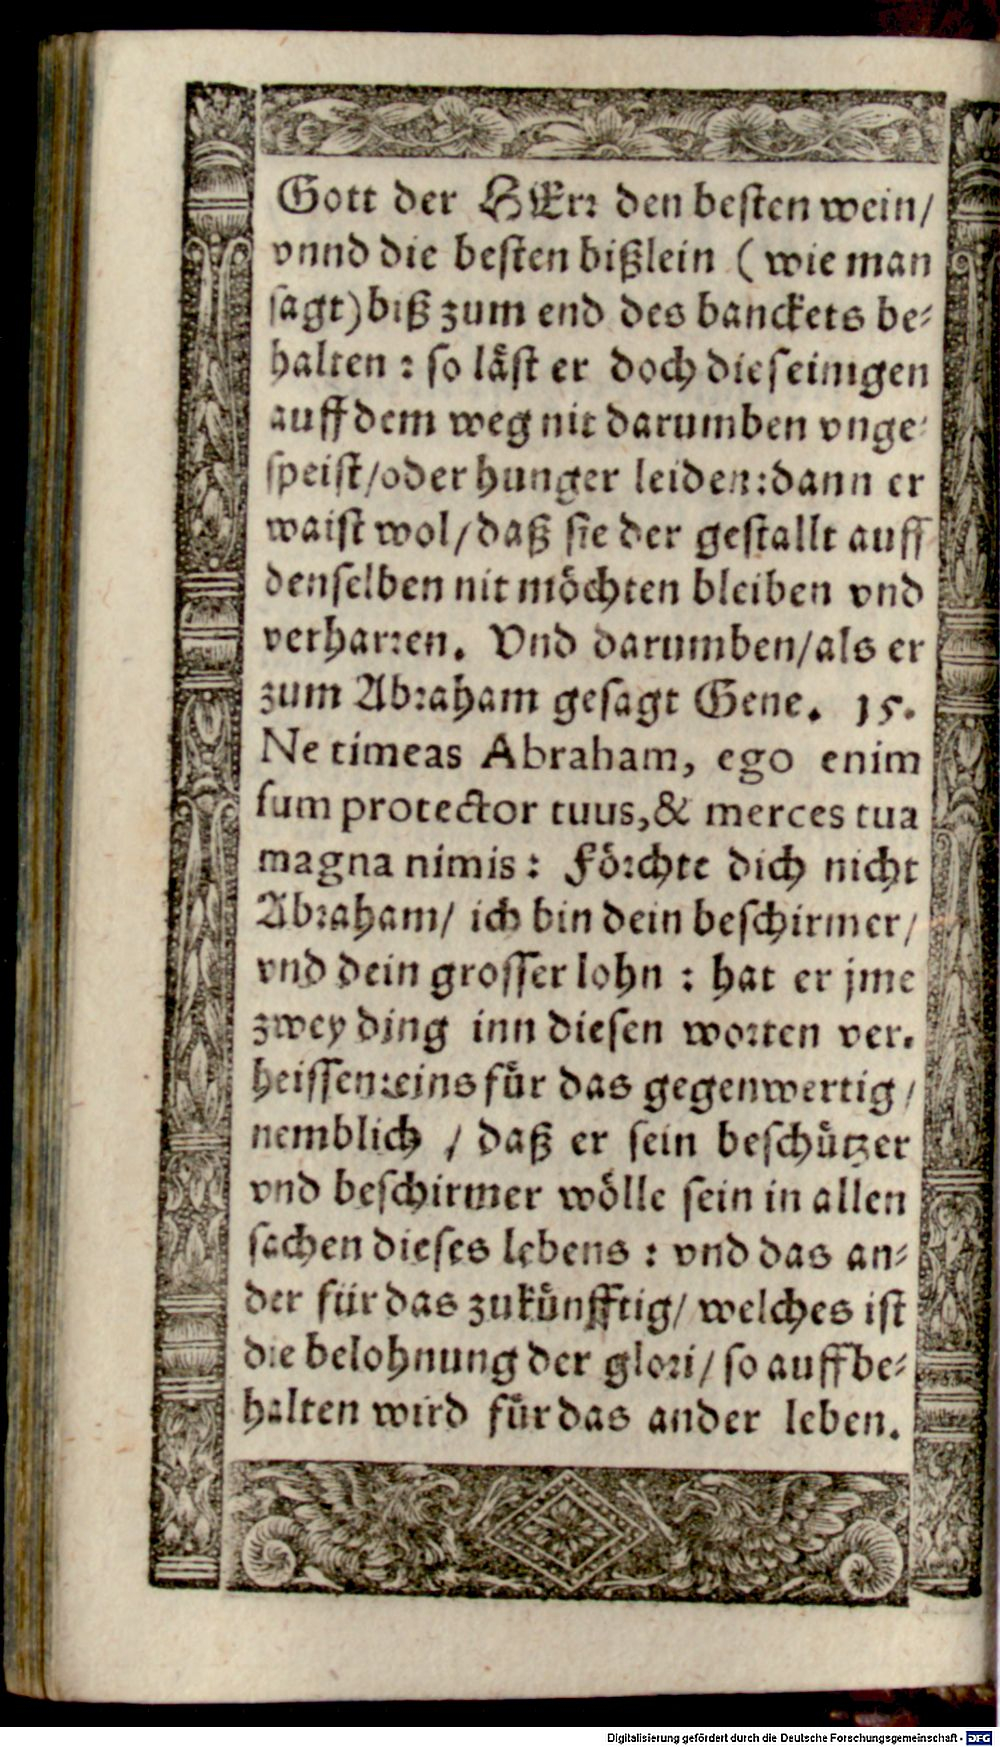 Gott der HErr den besten wein/
vnnd die besten bißlein (wie man
sagt) biß zum end des banckets be-
halten: so läst er doch die seinigen
auff dem weg nit darumben vnge-
speist/oder hunger leiden: dann er
waist wol/daß sie der gestallt auff
denselben nit möchten bleiben vnd
verharren. Vnd darumben/als er
zum Abraham gesagt Gene. 15.
Ne timeas Abraham, ego enim
sum protector tuus, & merces tua
magna nimis: Förchte dich nicht
Abraham/ ich bin dein beschirmer/
vnd dein grosser lohn: hat er jme
zwey ding inn diesen worten ver-
heissen: eins für das gegenwertig/
nemblich / daß er sein beschützer
vnd beschirmer wölle sein in allen
sachen dieses lebens: vnd das an-
der für das zukünfftig/ welches ist
die belohnung der glori/ so auff be-
halten wird für das ander leben.
Digitalisierung gefördert durch die Deutsche Forschungsgemeinschaft - DFG